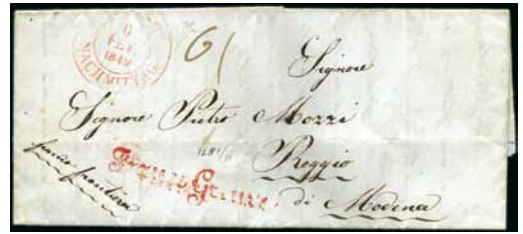 6
FEV
1849
NACHMITTAG
61
Signore
Signore Pietro Mozzi
Reggio
di Modena
franco frontiera